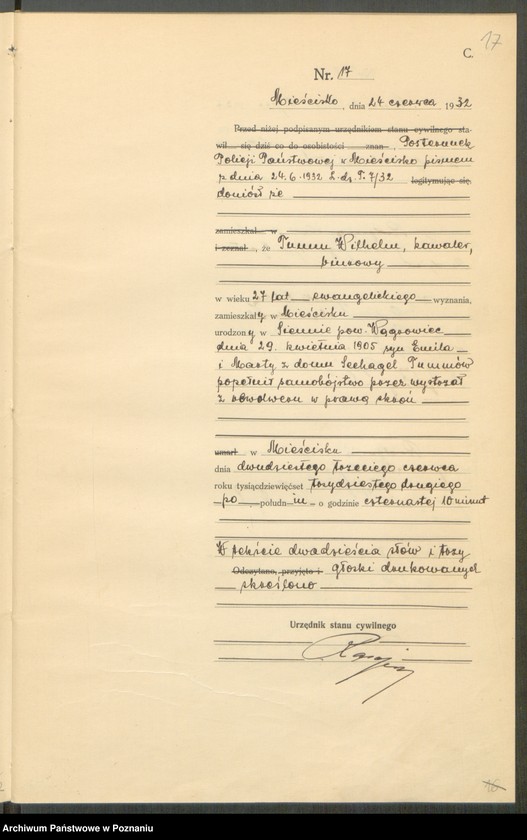 17
C.
Nr. 17
Mieścisko, dnia 24 czerwca 1932
Przed niżej podpisanym urzędnikiem stanu cywilnego sta-
wił się dziś co do osobistości znan , Posterunek
Policji Państwowej w Mieścisko pismem
z dnia 24.6.1932 L.dz. T. 7/32 legitymując się.
doniósł że
zamieszkał w
i zeznał , że Tumm Wilhelm, kawaler,
biurowy
w wieku 27 lat ewangelickiego wyznania,
zamieszkały w Mieścisku
urodzony w Siennie pow. Wągrowiec
dnia 29. kwietnia 1905 syn Emila
i Marty z domu Seehagel Tummów
popełnił samobójstwo przez wystrzał
z rewolweru w prawą skroń
umarł w Mieścisku
dnia dwudziestego trzeciego czerwca
roku tysiącdziewięćset trzydziestego drugiego
po południu o godzinie czternastej 10 minut
W tekście dwadzieścia słów i trzy
Odczytano, przyjęto i głoski drukowanych
skreślono
Urzędnik stanu cywilnego
16
Archiwum Państwowe w Poznaniu